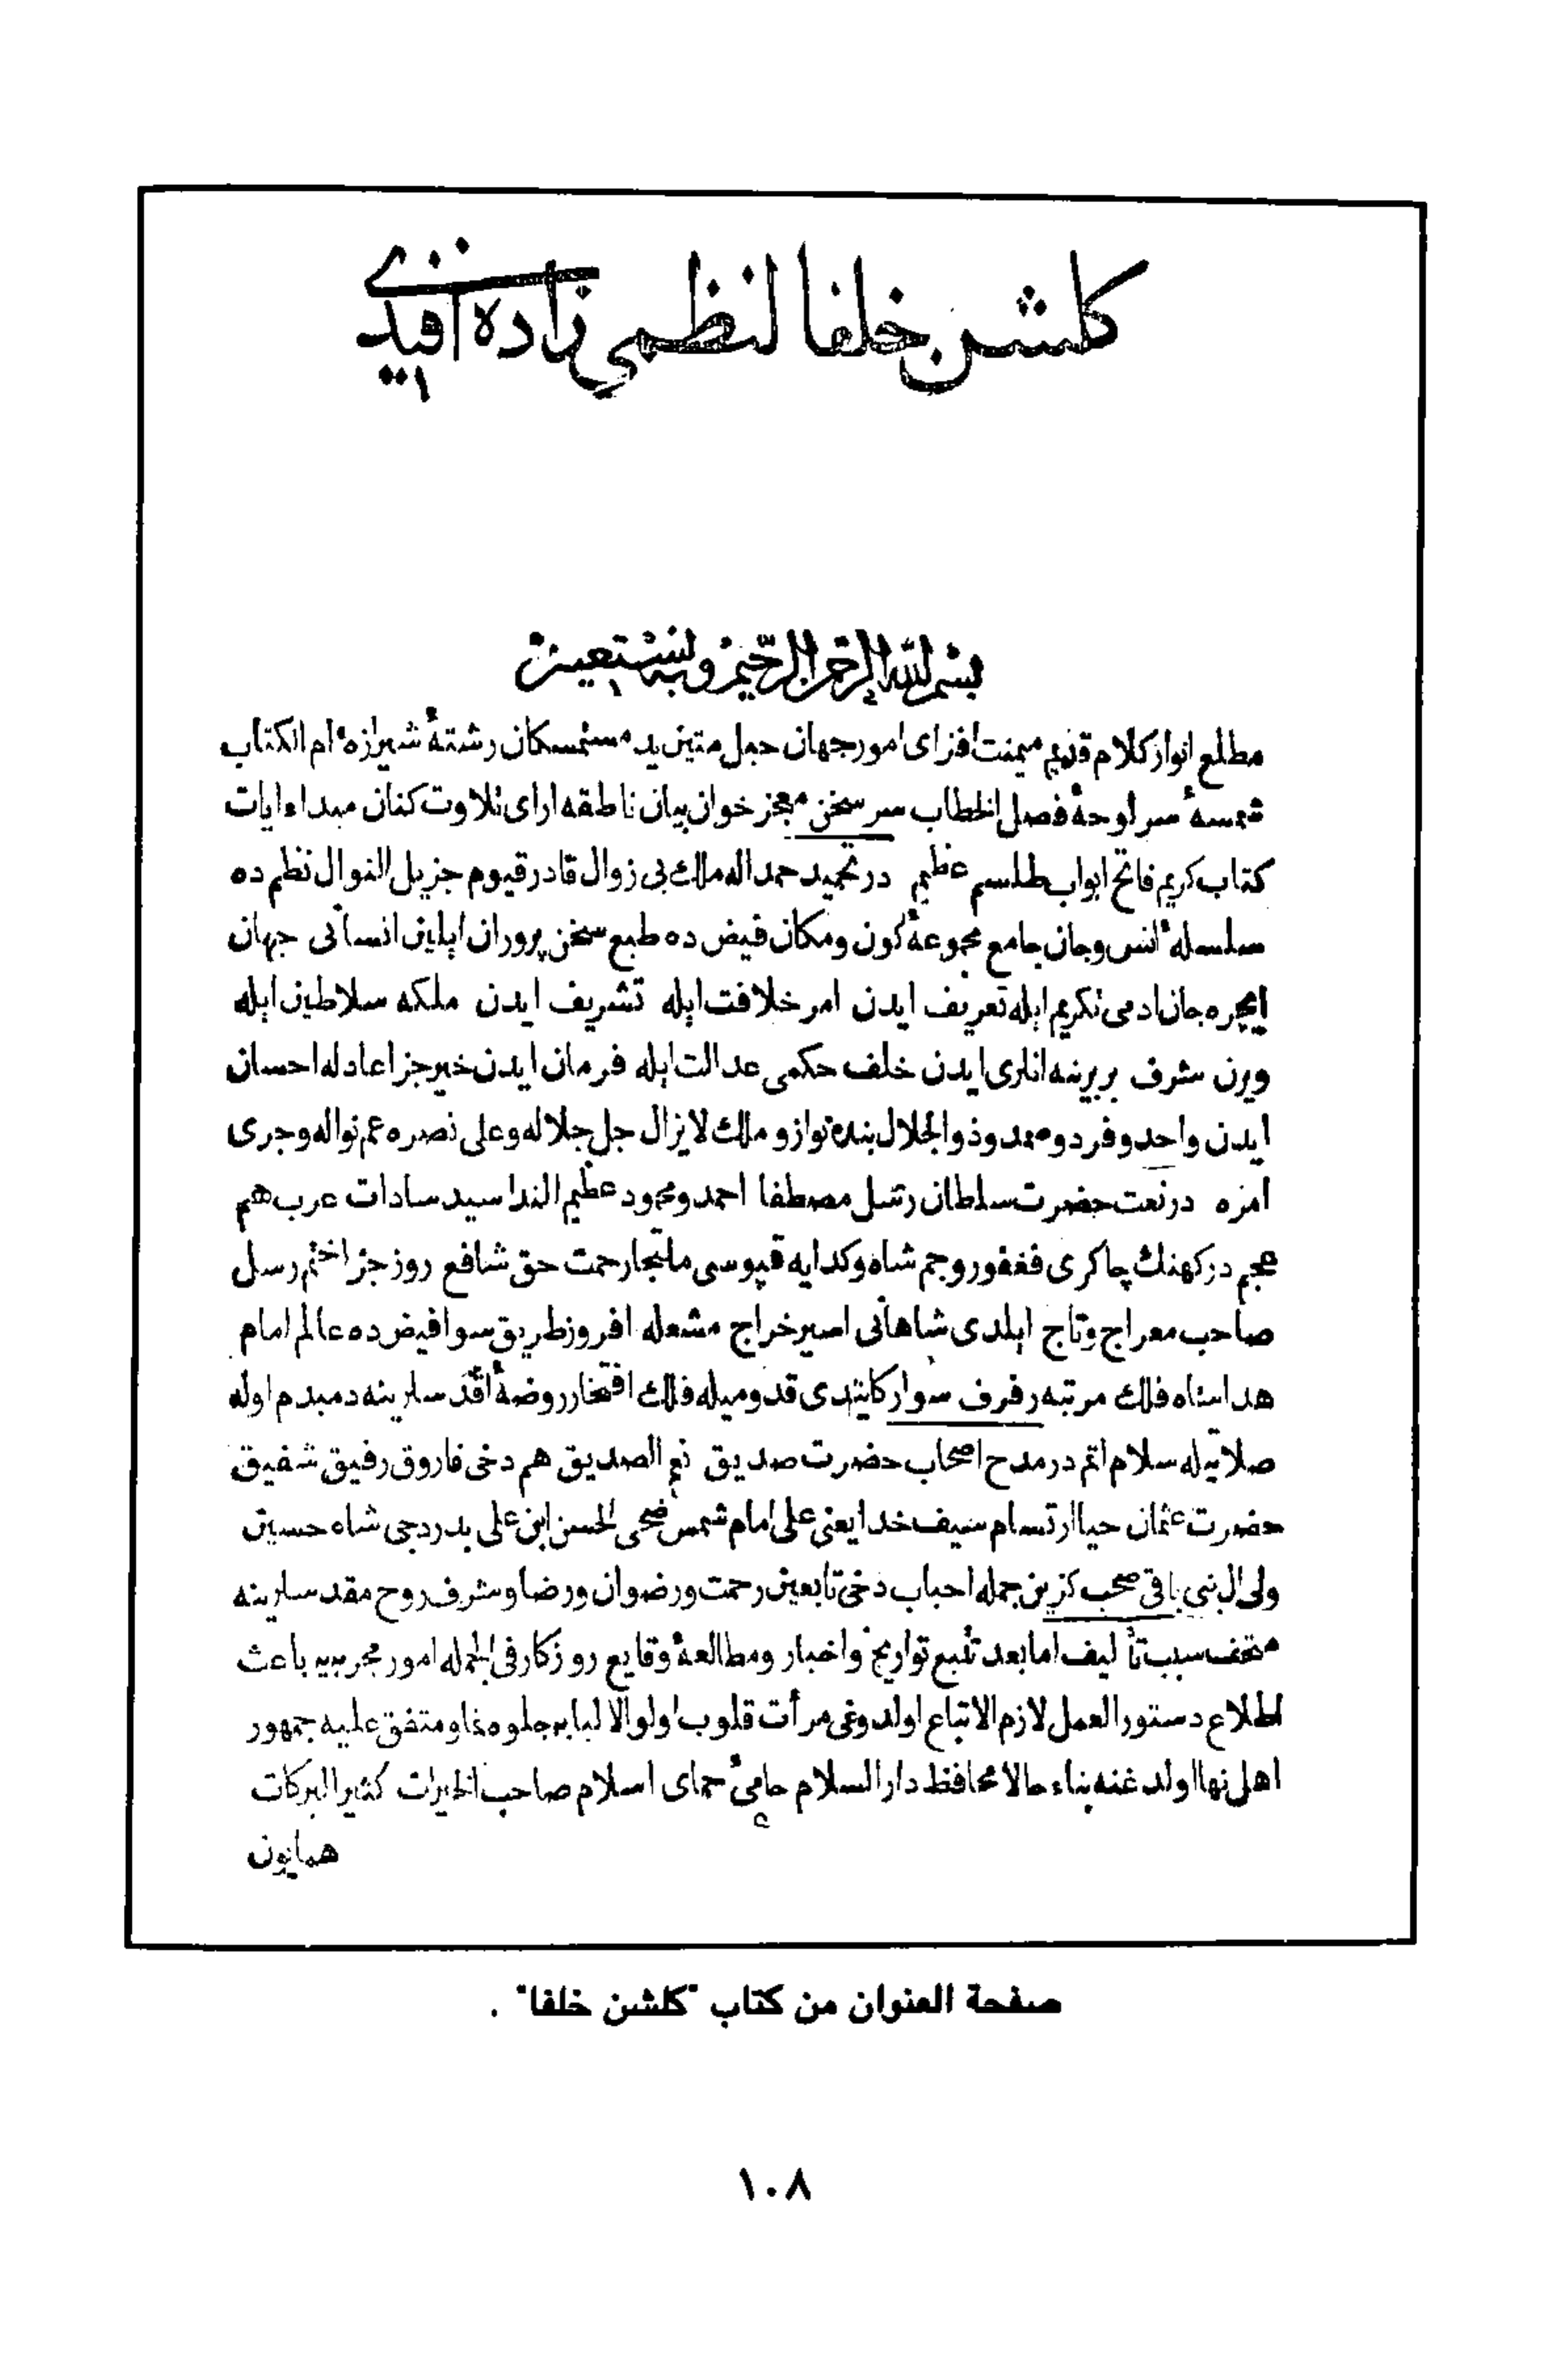 كلشن خلفا لنظمي زاده افندي
بسم الله الرحمن الرحيم وبه نستعين
مطلع انوار كلام قديم ميمنت افزاى امور جهان حبل متين يد مستمسكان رشتهٔ شيرازهٔ ام الكتاب
شمسهٔ سر لوحهٔ فصل الخطاب سر سخن معجز خوان بيان ناطقه اراى تلاوت كنان مبداء ايات
كتاب كريم فاتح ابواب طلسم عظيم در تحميد حمد اله ملك بى زوال قادر قيوم جزيل النوال نظم ده
سلسلهٔ انس وجان جامع مجموعهٔ كون ومكان فيض ده طبع سخن پروران ايلين انسانى جهان
ايچره جان ادمى تكريم ايله تعريف ايدن امر خلافت ايله تشريف ايدن ملكه سلاطين ايله
ويرن شرف بربرينه انلرى ايدن خلف حكمى عدالت ايله فرمان ايدن خير جزا عادله احسان
ايدن واحد وفرد وصمد وذو الجلال بنده نواز و ملك لا يزال جل جلاله وعلى نصره عم نواله وجرى
امره در نعت حضرت سلطان رسل مصطفا احمد ومحمود عظيم الندا سيد سادات عرب هم
عجم دركهنك چاكرى فغفور وجم شاه وكدايه قپوسى ملتجا رحمت حق شافع روز جزا ختم رسل
صاحب معراج وتاج ايلدى شاهانى اسير خراج مشعله افروز طريق سوا فيض ده عالم امام
هدا استاه فلك مرتبه رفرف سوار كايتدى قدوميله فلك افتخار روضهٔ اقدسلرينه دمبدم اوله
صلاتيله سلام اتم در مدح اصحاب حضرت صديق نعم الصديق هم دخى فاروق رفيق شفيق
حضرت عثمان حيا ارتسام سيف خدا يعنى على امام شمس ضحى الحسن ابن على بدر دجى شاه حسين
ولى ال نبى باقى صحب كزين جمله احباب دخى تابعين رحمت ورضوان ورضا وشرف روح مقدسلرينه
متحف سبب تأليف اما بعد تتبع تواريخ واخبار ومطالعهٔ وقايع روزكار فى الجمله امور مجربيه باعث
اطلاع دستور العمل لازم الاتباع اولدوغى مرأت قلوب اولو الالبابه جلوه نما ومتفق عليه جمهور
اهل نها اولدغنه بناء حالا محافظ دار السلام حامئ حماى اسلام صاحب الخيرات كثير البركات
همايون
صفحة العنوان من كتاب "كلشن خلفا" .
١٠٨